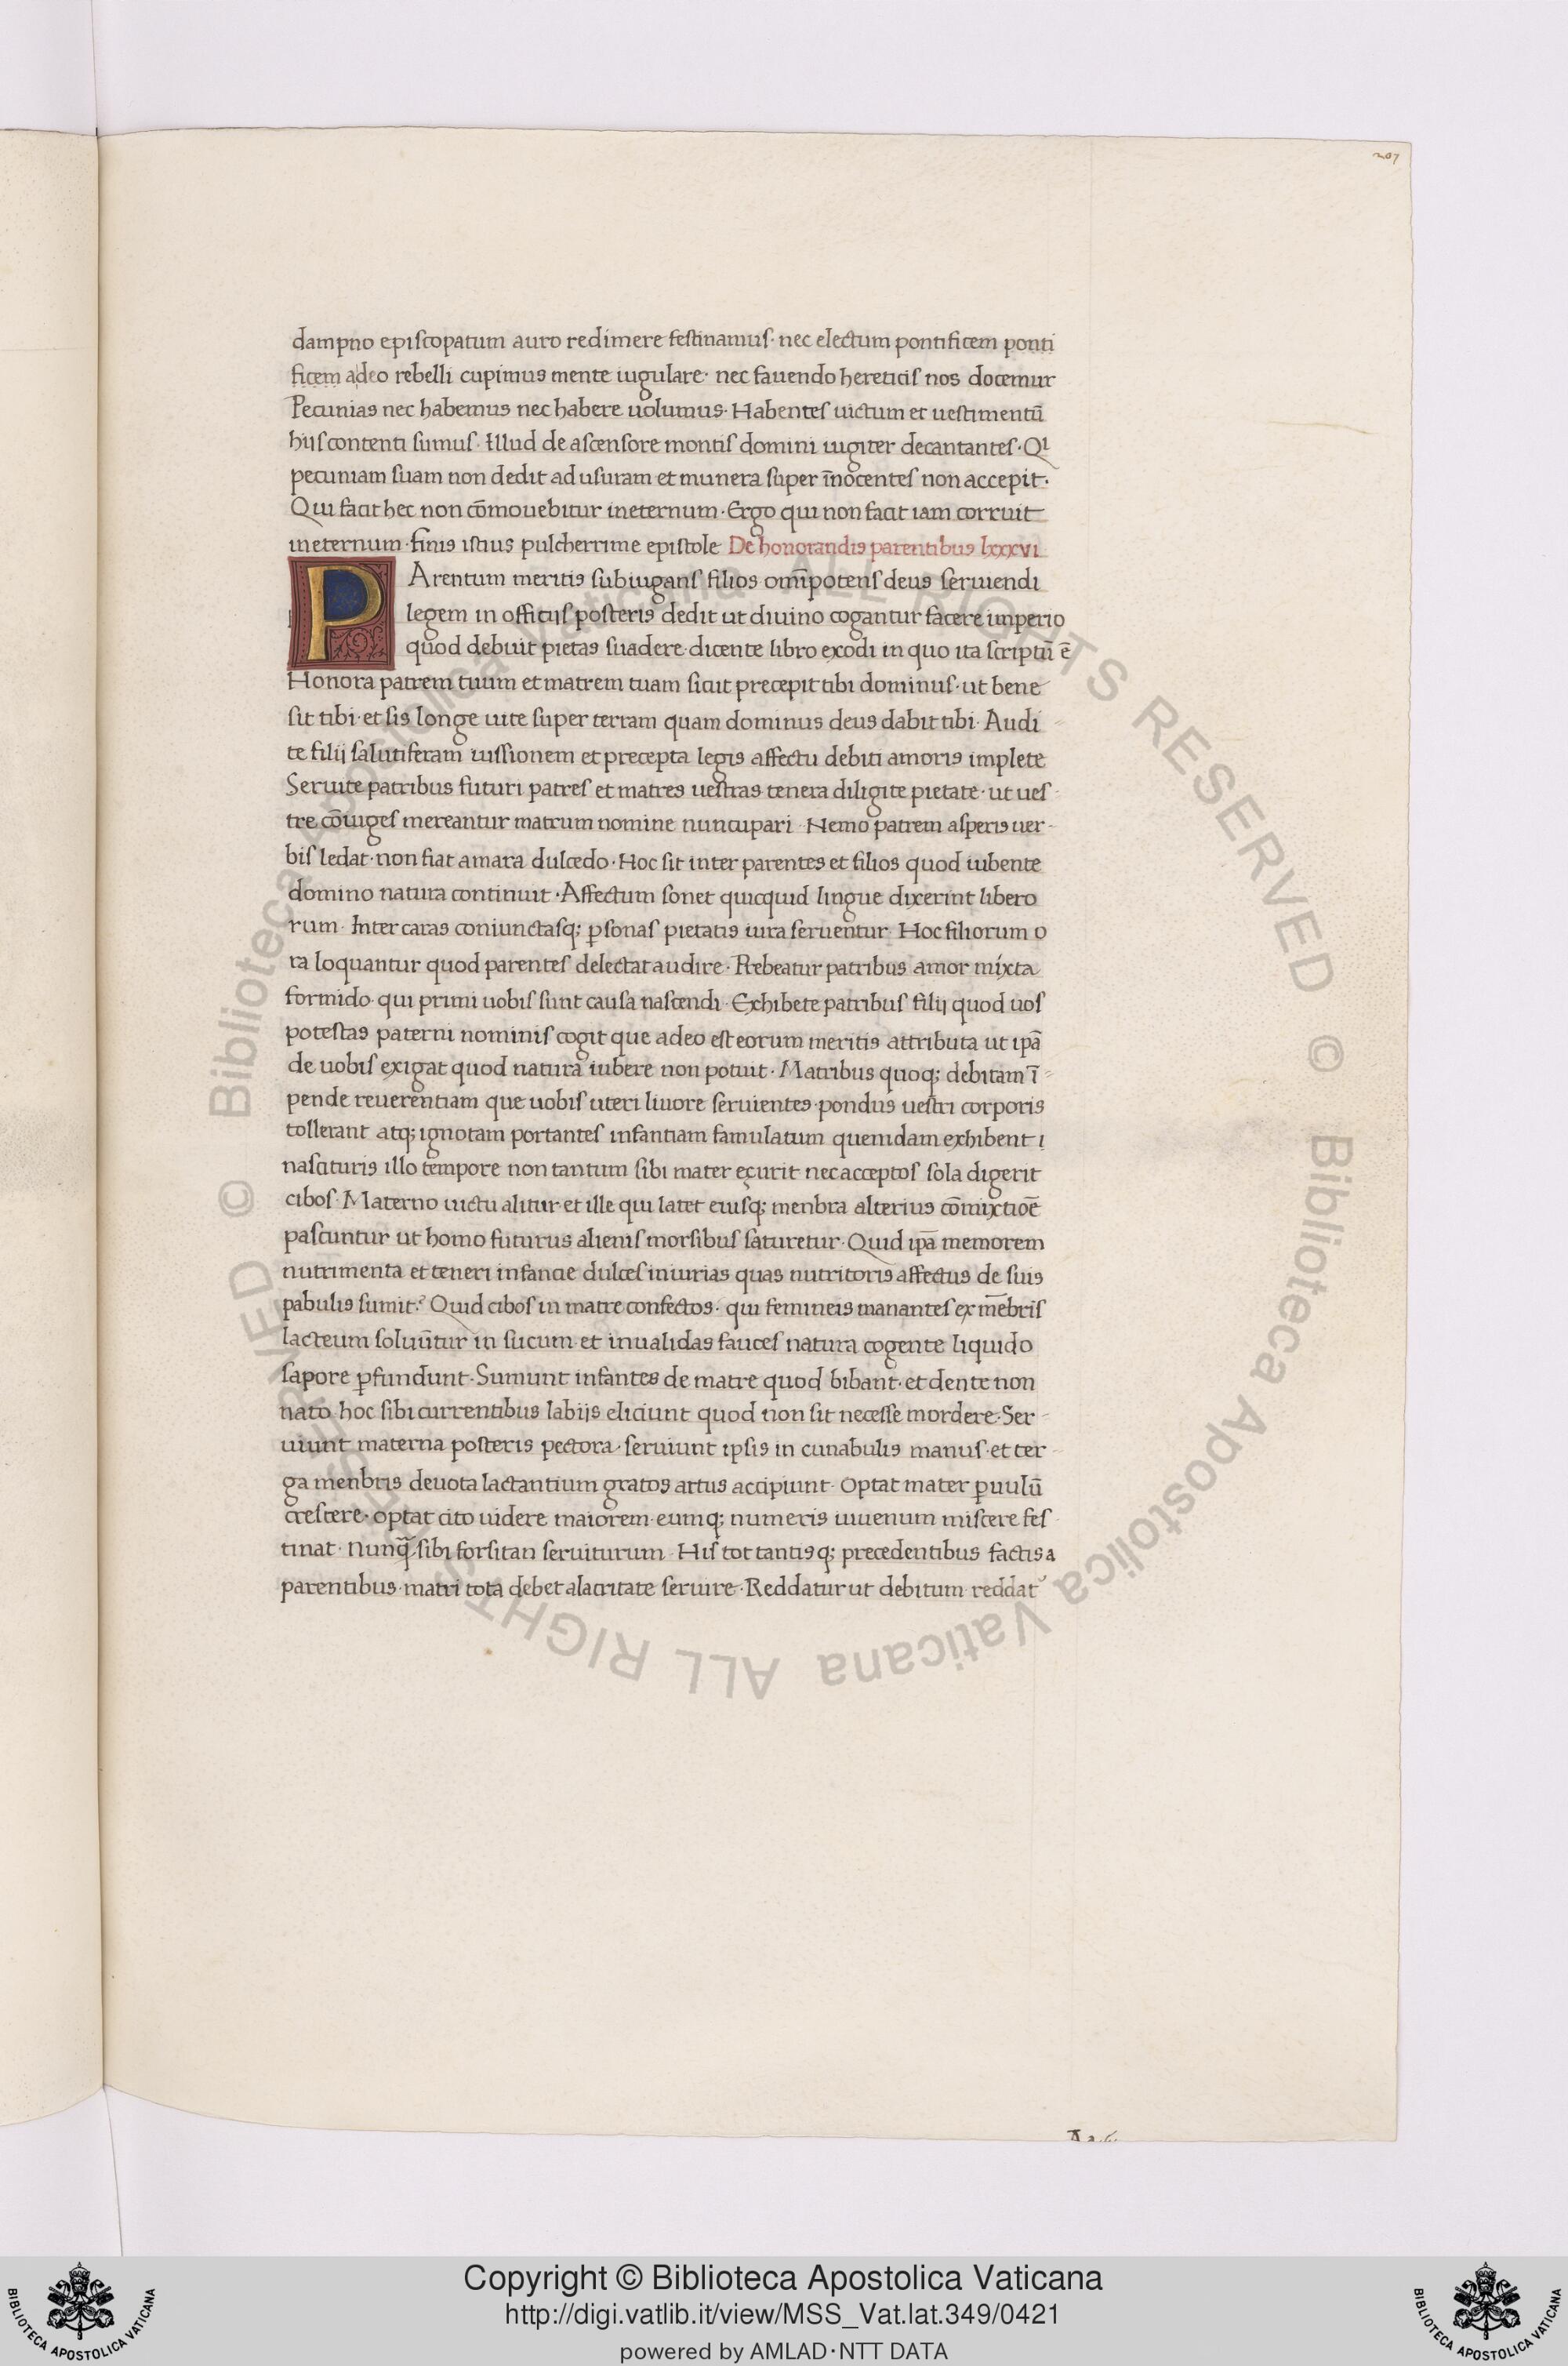 207
dampno episcopatum auro redimere festinamus· nec electum pontificem ponti
ficem adeo rebelli cupimus mente iugulare· nec fauendo hereticis nos docemur
Pecunias nec habemus nec habere uolumus· Habentes uictum et uestimentū
hijs contenti sumus· Illud de ascensore montis domini iugiter decantantes· Qı
pecuniam suam non dedit ad usuram et munera super īnocentes non accepit·
Qui facit hec non cōmouebitur ineternum· Ergo qui non facit iam corruit
ineternum· finis istius pulcherrime epistole De honorandis parentibus lxxxvi
PArentum meritis subiugans filios omīpotens deus seruiendi
legem in officijs posteris dedit ut diuino cogantur facere imperio
quod debuit pietas suadere· dicente libro exodi in quo ita scriptū ē
Honora patrem tuum et matrem tuam sicut precepit tibi dominus· ut bene
sit tibi· et sis longe uite super terram quam dominus deus dabit tibi· Audi
te filij salutiferam iussionem et precepta legis affectu debiti amoris implete
Seruite patribus futuri patres et matres uestras tenera diligite pietate· ut ues
tre cōiuges mereantur matrum nomine nuncupari· Nemo patrem asperis uer-
bis ledat· non fiat amara dulcedo· Hoc sit inter parentes et filios quod iubente
domino natura continuit· Affectum sonet quicquid lingue dixerint libero
rum· Inter caras coniunctasq; ꝑsonas pietatis iura seruentur· Hoc filiorum o
ra loquantur quod parentes delectat audire· Rebeatur patribus amor mixta
formido· qui primi uobis sunt causa nascendi· Exhibete patribus filij quod uos
potestas paterni nominis cogit que adeo est eorum meritis attributa ut ipā
de uobis exigat quod natura iubere non potuit· Matribus quoq; debitam ī-
pende reuerentiam que uobis uteri liuore seruientes· pondus uestri corporis
tollerant atq; ignotam portantes infantiam famulatum quemdam exhibent i
nascituris illo tempore non tantum sibi mater eçurit nec acceptos sola digerit
cibos· Materno uictu alitur et ille qui latet eiusq; menbra alterius cōmixtioē
pascuntur ut homo futurus alienis morsibus saturetur· Quid ipā memorem
nutrimenta et teneri infancie dulces iniurias quas nutritoris affectus de suis
pabulis sumit? Quid cibos in matre confectos· qui femineis manantes ex mēbris
lacteum soluūtur in sucum et inualidas fauces natura cogente liquido
sapore ꝑfundunt· Sumunt infantes de matre quod bibant· et dente non
nato hoc sibi currentibus labijs eliciunt quod non sit necesse mordere· Ser-
uiunt materna posteris pectora· seruiunt ipsis in cunabulis manus· et ter-
ga menbris deuota lactantium gratos artus accipiunt· Optat mater ꝑuulū
crescere· optat cito uidere maiorem· eumq; numeris iuuenum miscere fes-
tinat· Nunq̄ sibi forsitan seruiturum· His tot tantisq; precedentibus factis a
parentibus· matri tota debet alacritate seruire· Reddatur ut debitum reddat᾽
© Biblioteca Apostolica Vaticana ALL RIGHTS RESERVED
© Biblioteca Apostolica Vaticana ALL RIGHTS RESERVED
Copyright © Biblioteca Apostolica Vaticana
http://digi.vatlib.it/view/MSS_Vat.lat.349/0421
powered by AMLAD·NTT DATA
BIBLIOTECA APOSTOLICA VATICANA
BIBLIOTECA APOSTOLICA VATICANA